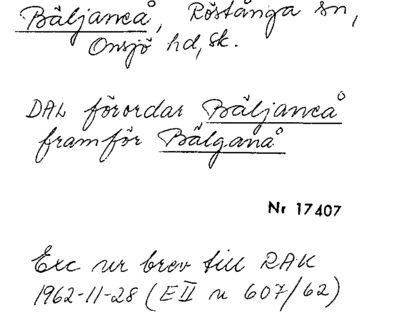 Bäljaneå, Röstånga sn,
Onsjö hd, Sk.
DAL förordar Bäljaneå
framför Bälganå
Nr 17407
Exc ur brev till RAK
1962-11-28 (EII n 607/62)